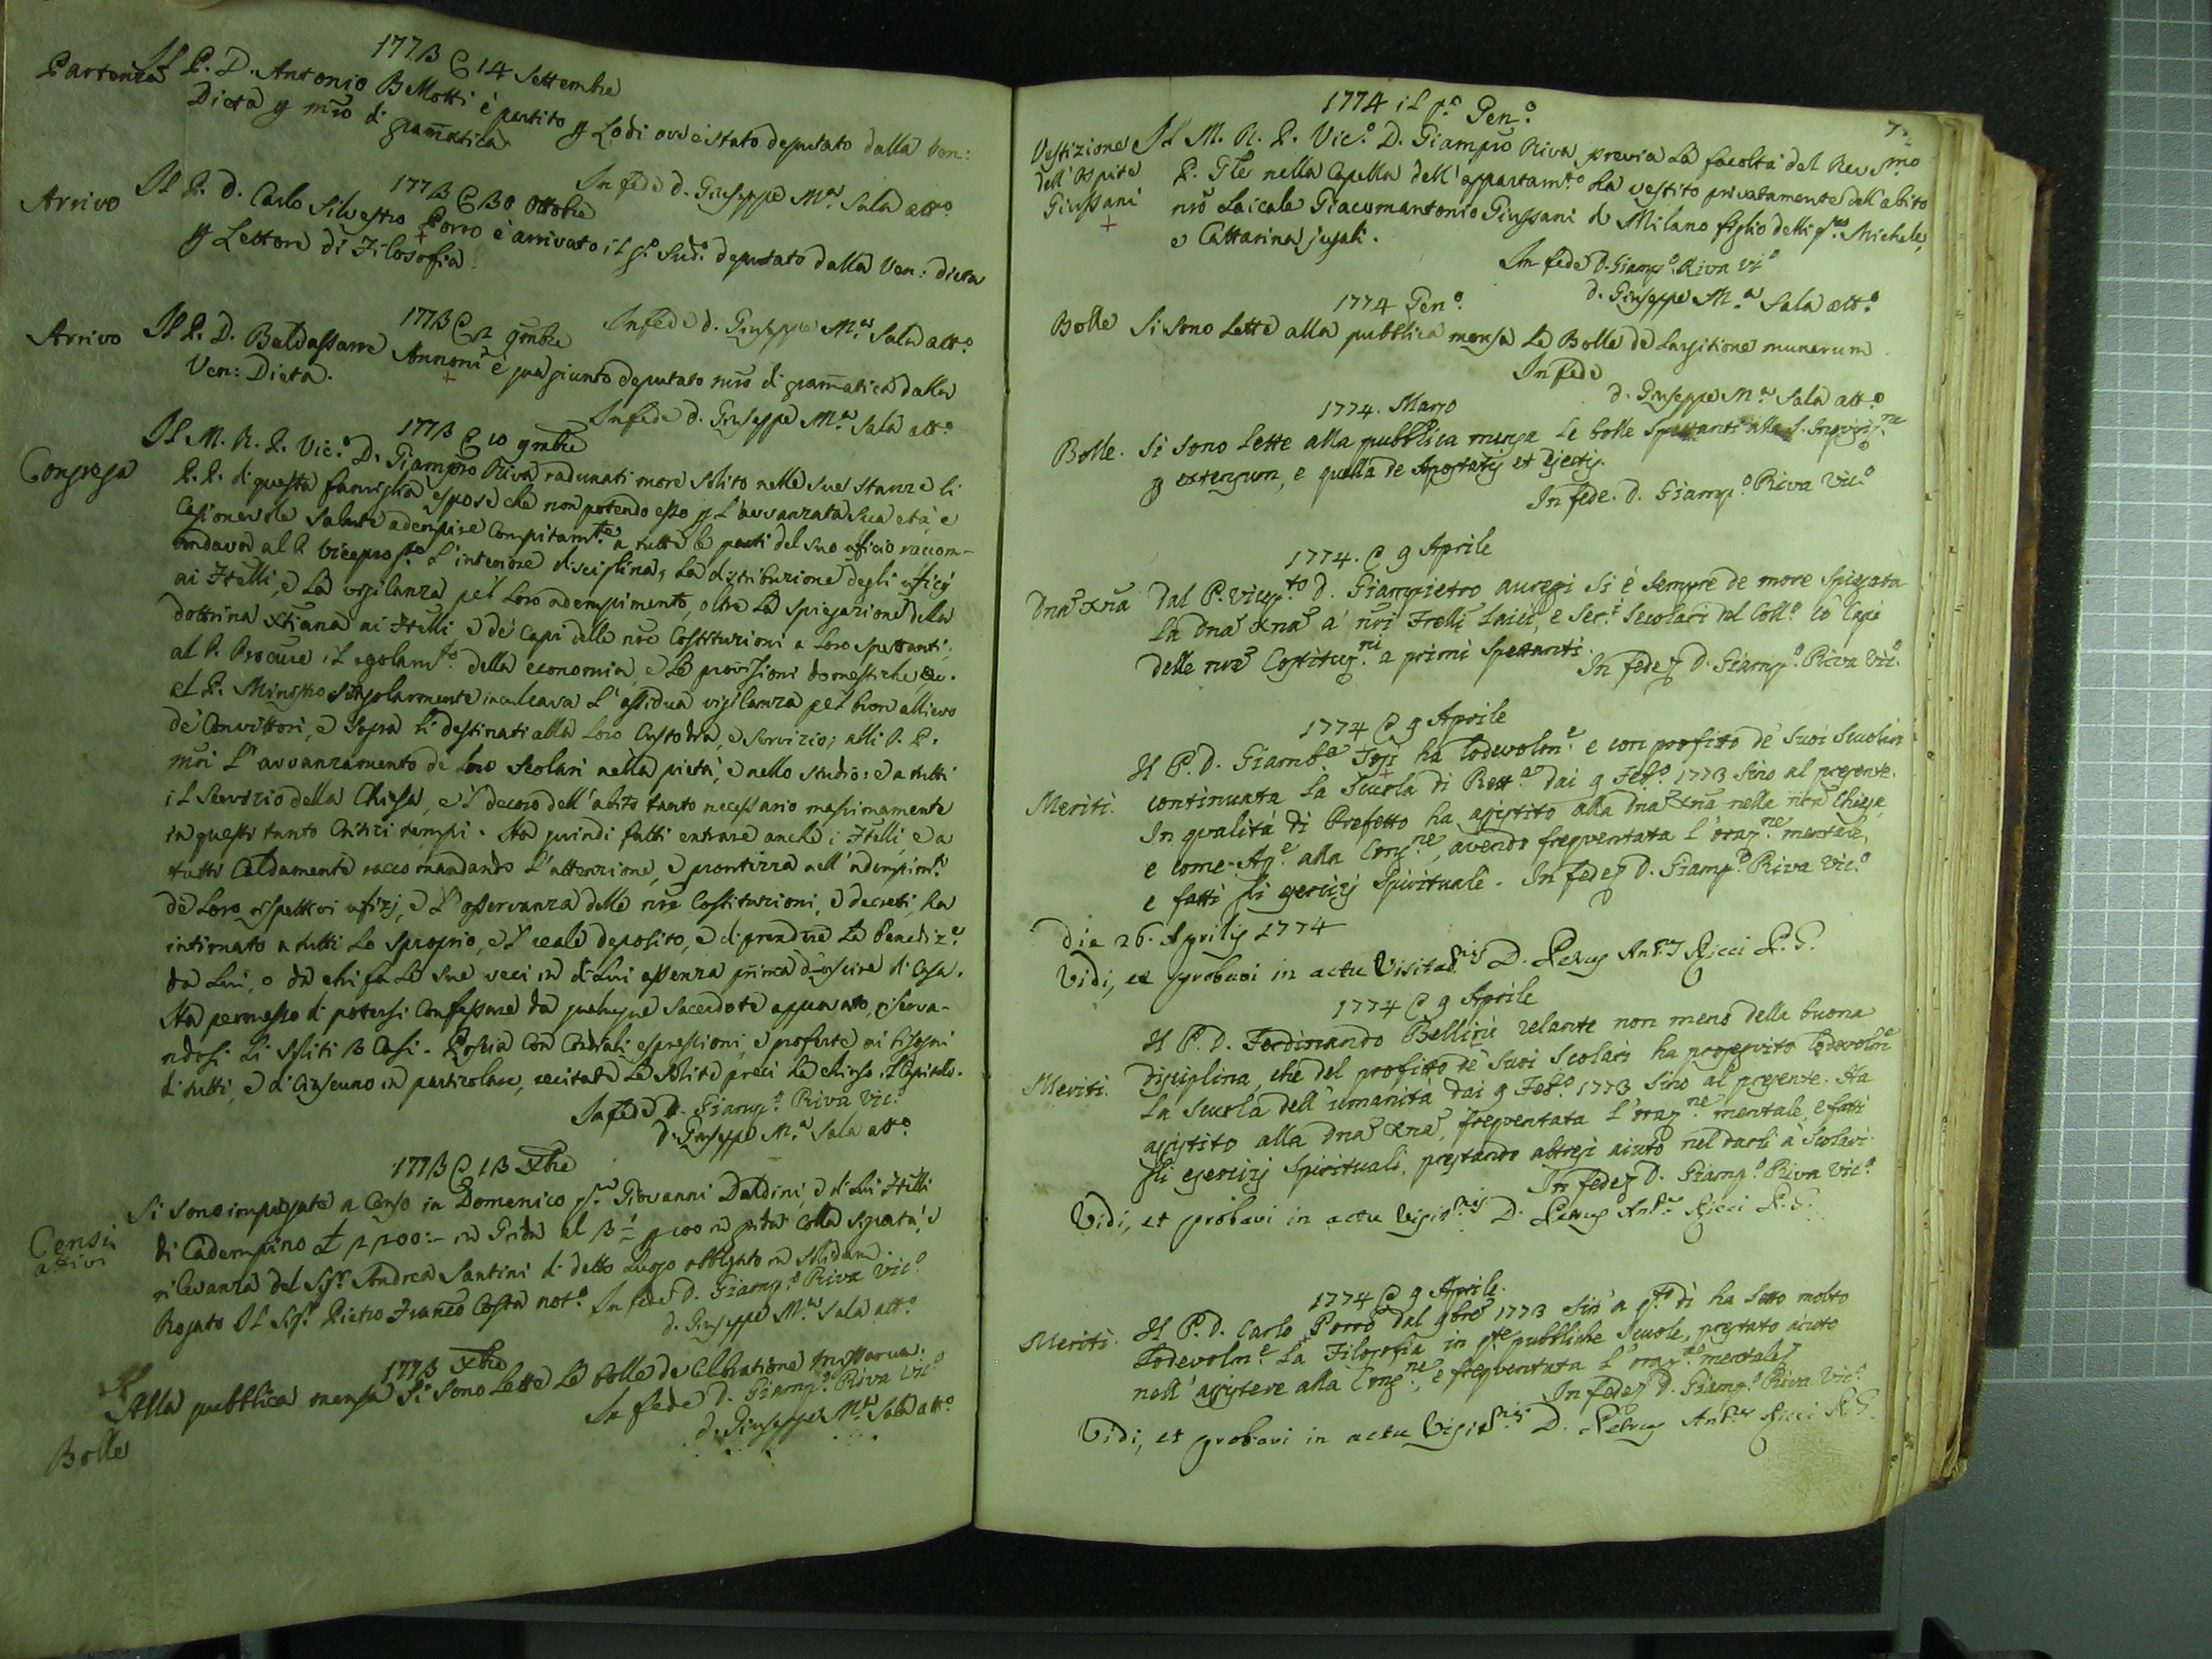 1773 14 Settembre
Partenza Il P. D. Antonio Bellotti è partito p Lodi ove è stato deputato dalla Ven:
Dieta p mro di gramatica
In fede d. Giuseppe M.a Sala att.o
1773 30 Ottobre
Arrivo Il P. D. Carlo Silvestro Porro è arrivato il deputato dalla Ven: dieta
p Lettore di Filosofia.
In fede d. Giuseppe M.a Sala att.o
1773 9mbre
Arrivo Il P. D. Baldassarre Annoni è qua giunto deputato mro di gramatica dalla
Ven: Dieta.
In fede d. Giuseppe M.a Sala att.o
1773 10 9mbre
Congrega Il M. R. P. Vic.o D. Giampro Riva radunati more solito nelle sue stanze li
P.P. di questa famiglia espose che non potendo esso p l'avvanzata sua età, e
cagionevole salute adempire compitam.te a tutte le parti del suo uficio raccom-
andava al P. Viceprop.to l'interiore disciplina, la distribuzione degli uficj
ai Ftelli, e la vigilanza pel loro adempimento, oltre la spiegazione della
dottrina Xtiana ai Ftelli, e de' capi delle nre Costituzioni a loro spettanti;
al P. Procure il regolam.to della economia, e le provisioni domestiche,
al P. Ministro singolarmente inculcava l'assidua vigilanza pel buon allievo
de' Convittori, e sopra li destinati alla loro custodia, e servizio; alli P. P.
mri l'avvanzamento de loro scolari nella pietà, e nello studio: e a tutti
il servizio della Chiesa, e 'l decoro dell'abito tanto necessario massimamente
in questi tanto critici tempi. Ha quindi fatti entrare anche i Ftelli, e a
tutti caldamente raccomandando l'attenzione, e prontezza nell'adempim.to
de loro rispettivi ufizj, e l'osservanza delle nre Costituzioni, e decreti, ha
intimato a tutti lo sproprio, e 'l reale deposito, e di prendere la Benediz.e
da lui, o da chi fa le sue veci in di lui assenza prima d'oscire di Casa.
Ha permesso di potersi confessare da qualunque Sacerdote approvato, riserva-
ndosi li soliti 13 Casi. Poscia con cordiali espressioni, e proferte ai bisogni
di tutti, e di ciascuno in particolare, recitate le solite preci ha chiuso il Capitolo.
In fede D. Giamp.o Riva Vic.o
d. Giuseppe M.a Sala att.o
1773 13 Xbre
Censi
attivi
Si sono impiegate a Censo in Domenico Giovanni Daldini, e di lui Ftelli
di Cadempino in Grida al p 100 in grida colla sigurtà, e
rilevanza del Sigr. Andrea Santini di detto Luogo obbligato in solidum.
Rogato Il Sigr. Pietro Franco Costa not.o In fede D. Giamp.o Riva Vic.o
d. Giuseppe M.a Sala att.o
1773 Xbre
Alla pubblica mensa si sono lette le bolle de Celebratione Missarum.
Bolle
In fede D. Giamp.o Riva Vic.o
d. Giuseppe M.a Sala att.o
1774 il p.o Gen.o
Vestizione
dell'Ospite
Giussani
Il M. R. P. Vic.o D. Giampro Riva previa la facoltà del Revs.mo
P. Gle nella Capella dell'appartam.to ha vestito privatamente dell'abito
nro Laicale Giacomantonio Giussani di Milano figlio delli Michele,
e Cattarina jugali.
In fede D. Giamp.o Riva Vi.o
d. Giuseppe M.a Sala att.o
1774 Gen.o
Bolle Si sono lette alla pubblica mensa le Bolle de Largitione munerum
In fede
d. Giuseppe M.a Sala att.o
1774. Marzo
Bolle. Si sono lette alla pubblica mensa le bolle spettanti alla S. Inquis.ne
p extensum, e quella de Apostatis et ejectis.
In fede. D. Giamp.o Riva Vic.o
1774. 9 Aprile
Dna Xna Dal P. Vicep.to D. Giampietro Auregi si è sempre de more spiegata
la Dna Xna a' nri Frelli Laici, e Ser.i Secolari del Coll.o co' Capi
delle nre Costituz.ni a primi spettanti.
In fede D. Giamp.o Riva Vic.o
1774 9 Aprile
Meriti. Il P. D. Giamb.a ha lodevolm.e e con profitto de' suoi Scolari
continuata la Scuola di Rett.a dai 9 Feb.o 1773 sino al presente.
In qualità di Prefetto ha assistito alla Dna Xna nella nra Chiesa,
e come Ag.e alla Cong.ne, avendo frequentata l'oraz.ne mentale,
e fatti gli esercizj Spirituali. In fede D. Giamp.o Riva Vic.o
Die 26. Aprilis 1774
Vidi, et probavi in actu Visitat.nis D. Petrus Ant.s Ricci P. G.
1774 9 Aprile
Meriti. Il P. D. Ferdinando Bellini zelante non meno della buona
disciplina, che del profitto de' suoi Scolari ha proseguito lodevolm.e
la Scuola dell'umanità dai 9 Feb.o 1773 sino al presente. Ha
assistito alla Dna Xna, frequentata l'oraz.ne mentale, e fatti
gli esercizj Spirituali, prestando altresì aiuto nel darli a' Scolari.
In fede D. Giamp.o Riva Vic.o
Vidi, et probavi in actu Visit.nis D. Petrus Ant.s Ricci P. G.
1774 9 Aprile.
Meriti. Il P. D. Carlo Porro dal 9bre 1773 sin' a q.to dì ha letto molto
lodevolm.e la Filosofia in q.te pubbliche Scuole, prestato aiuto
nell'assistere alla Cong.ne, e frequentata l'oraz.ne mentale.
In fede D. Giamp.o Riva Vic.o
Vidi, et probavi in actu Visit.nis D. Petrus Ant.s Ricci P. G.